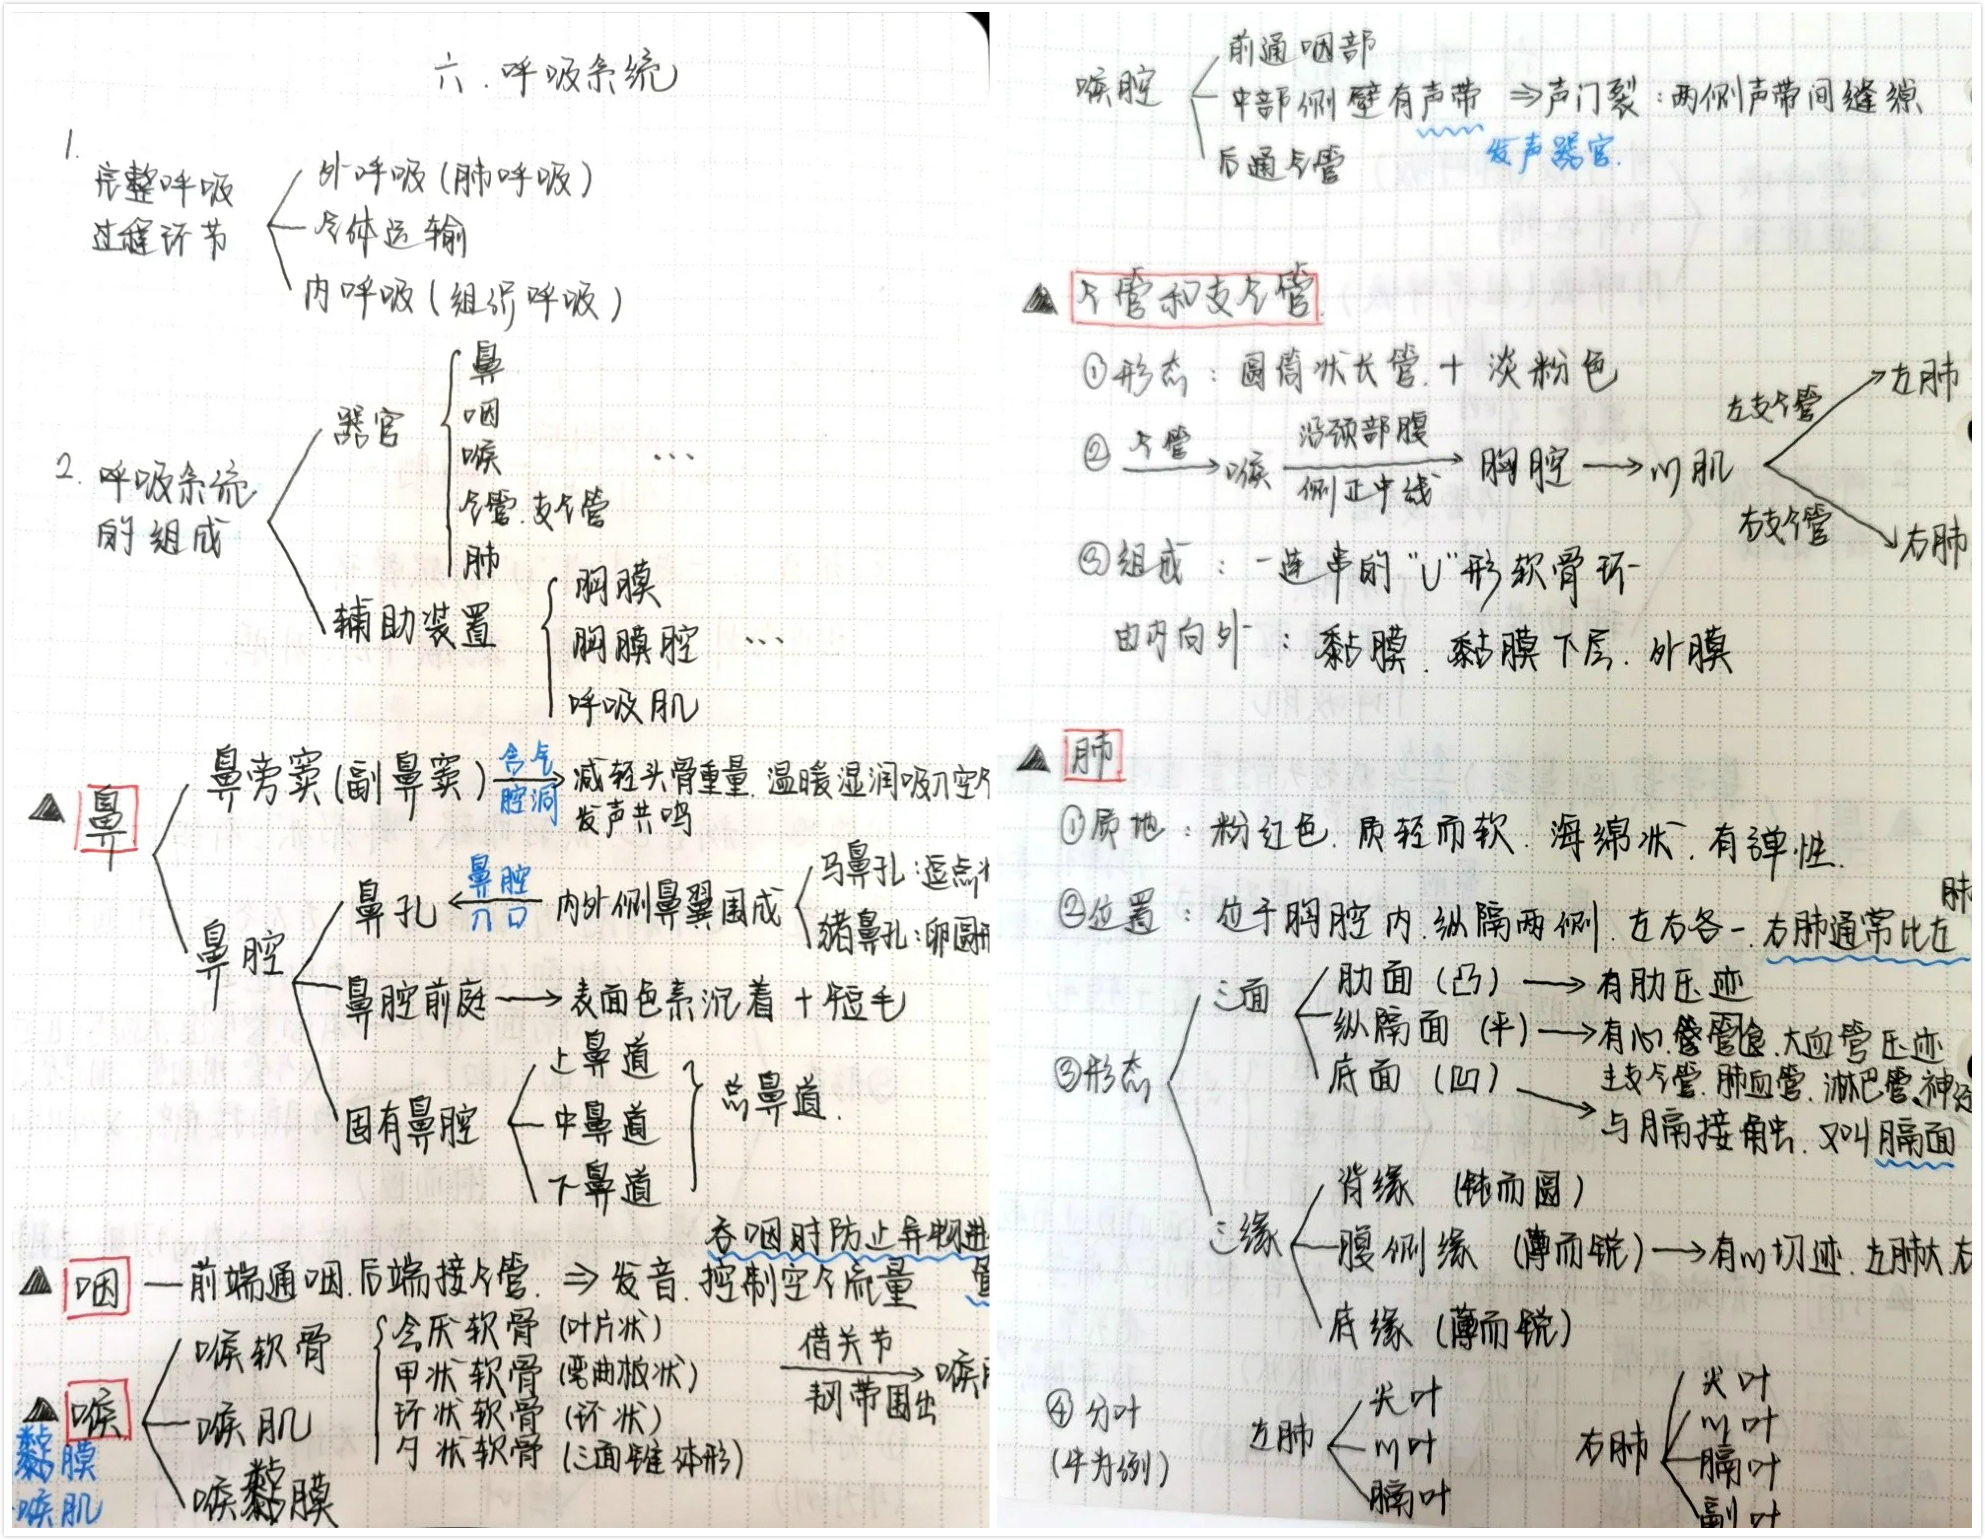 六.呼吸系统
1.
完整呼吸
过程环节
外呼吸(肺呼吸)
气体运输
内呼吸(组织呼吸)
2.呼吸系统
的组成
器官
鼻
咽
喉
气管.支气管
肺
...
辅助装置
胸膜
胸膜腔
呼吸肌
...
▲ 鼻
鼻旁窦(副鼻窦)
含气
腔洞
减轻头骨重量.温暖湿润吸入空气
发声共鸣
鼻腔
鼻孔
鼻腔
入口
内外侧鼻翼围成
马鼻孔:逗点状
猪鼻孔:卵圆形
鼻腔前庭→表面色素沉着+短毛
固有鼻腔
上鼻道
中鼻道
下鼻道
总鼻道.
吞咽时防止异物进
▲ 咽 — 前端通咽.后端接气管. ⇒ 发音.控制空气流量
▲ 喉
黏膜
喉肌
喉软骨
会厌软骨(叶片状)
甲状软骨(弯曲板状)
环状软骨(环状)
勺状软骨(三面锥体形)
借关节
韧带围出
喉
喉肌
喉黏膜
喉腔
前通咽部
中部侧壁有声带 ⇒声门裂:两侧声带间缝隙
发声器官.
后通气管
▲ 气管和支气管.
①形态:圆筒状长管.+淡粉色
②
气管
→喉
沿颈部腹
侧正中线
→胸腔→心肌
左支气管
左肺
右支气管
右肺
③组成:一连串的“U”形软骨环
由内向外:黏膜.黏膜下层.外膜
▲ 肺
①质地:粉红色.质轻而软.海绵状.有弹性.
②位置:位于胸腔内.纵隔两侧.左右各一.右肺通常比左
肺
③形态
三面
肋面(凸)→有肋压迹
纵隔面(平)→有心.食管.大血管压迹
主支气管.肺血管.淋巴管.神经
底面(凹)
与膈接触.又叫膈面
三缘
背缘(钝而圆)
腹侧缘(薄而锐)→有心切迹.左肺大.右
底缘(薄而锐)
④分叶
(牛为例)
左肺
尖叶
心叶
膈叶
右肺
尖叶
心叶
膈叶
副叶